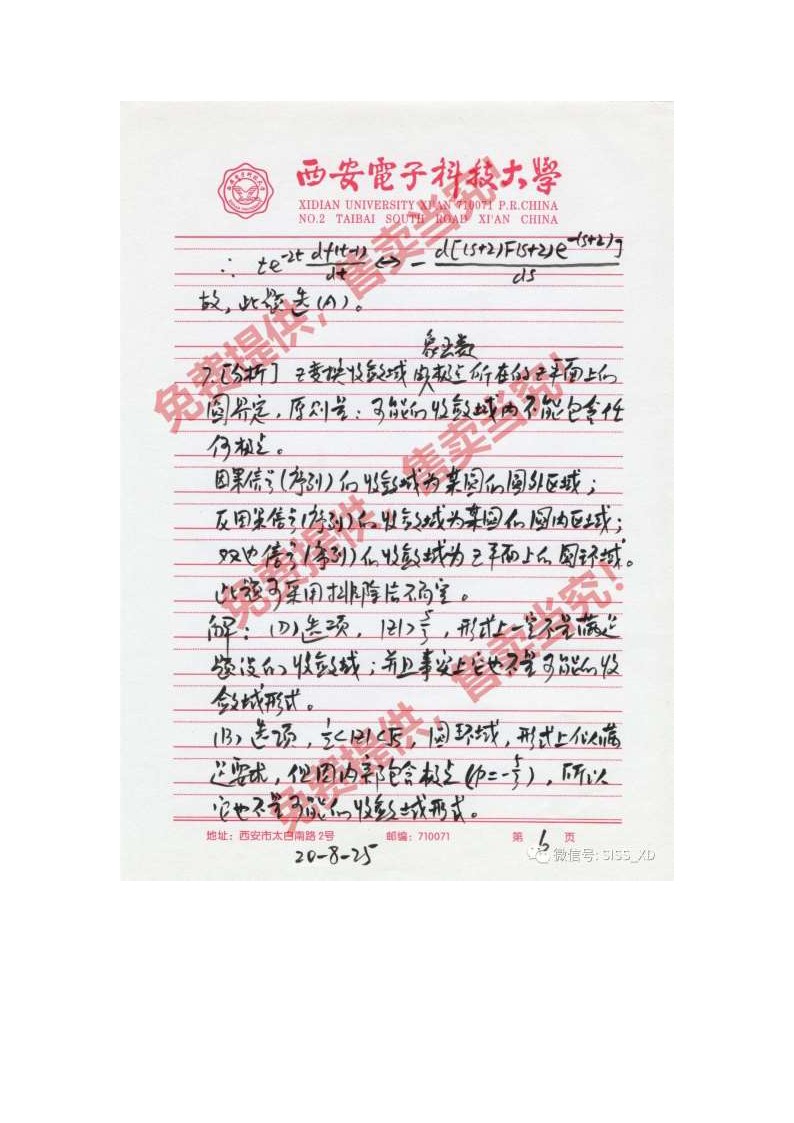 西安電子科技大學
XIDIAN UNIVERSITY XI'AN 710071 P.R.CHINA
NO.2 TAIBAI SOUTH ROAD XI'AN CHINA
∴ te^{-2t} df(t-1)/dt ↔ - d[(s+2)F(s+2)e^{-(s+2)}]/ds
故,此题选(A)。
象函数
7.[分析] Z变换收敛域由极点所在的Z平面上的
圆界定,原则是:可能的收敛域内不能包含任
何极点。
因果信号(序列)的收敛域为某圆的圆外区域;
反因果信号(序列)的收敛域为某圆的圆内区域;
双边信号(序列)的收敛域为Z平面上的圆环域。
此题可采用排除法不而定。
解:(D)选项,|z|>5/3,形式上一定不是满足
题设的收敛域;并且事实上它也不是可能的收
敛域形式。
(B)选项,1/2<|z|<√5,圆环域,形式上似满
足要求,但因内部包含极点(p=-5/3),所以
它也不是可能的收敛域形式。
地址:西安市太白南路2号 邮编:710071 第 6 页
20-8-25
微信号: SISS_XD
免费提供,售卖当究!
免费提供,售卖当究!
免费提供,售卖当究!